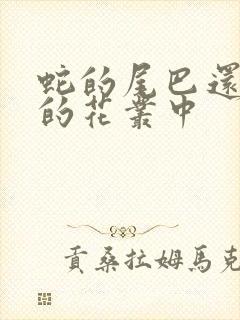 蛇的尾巴還
的花叢中
貢桑拉姆馬克